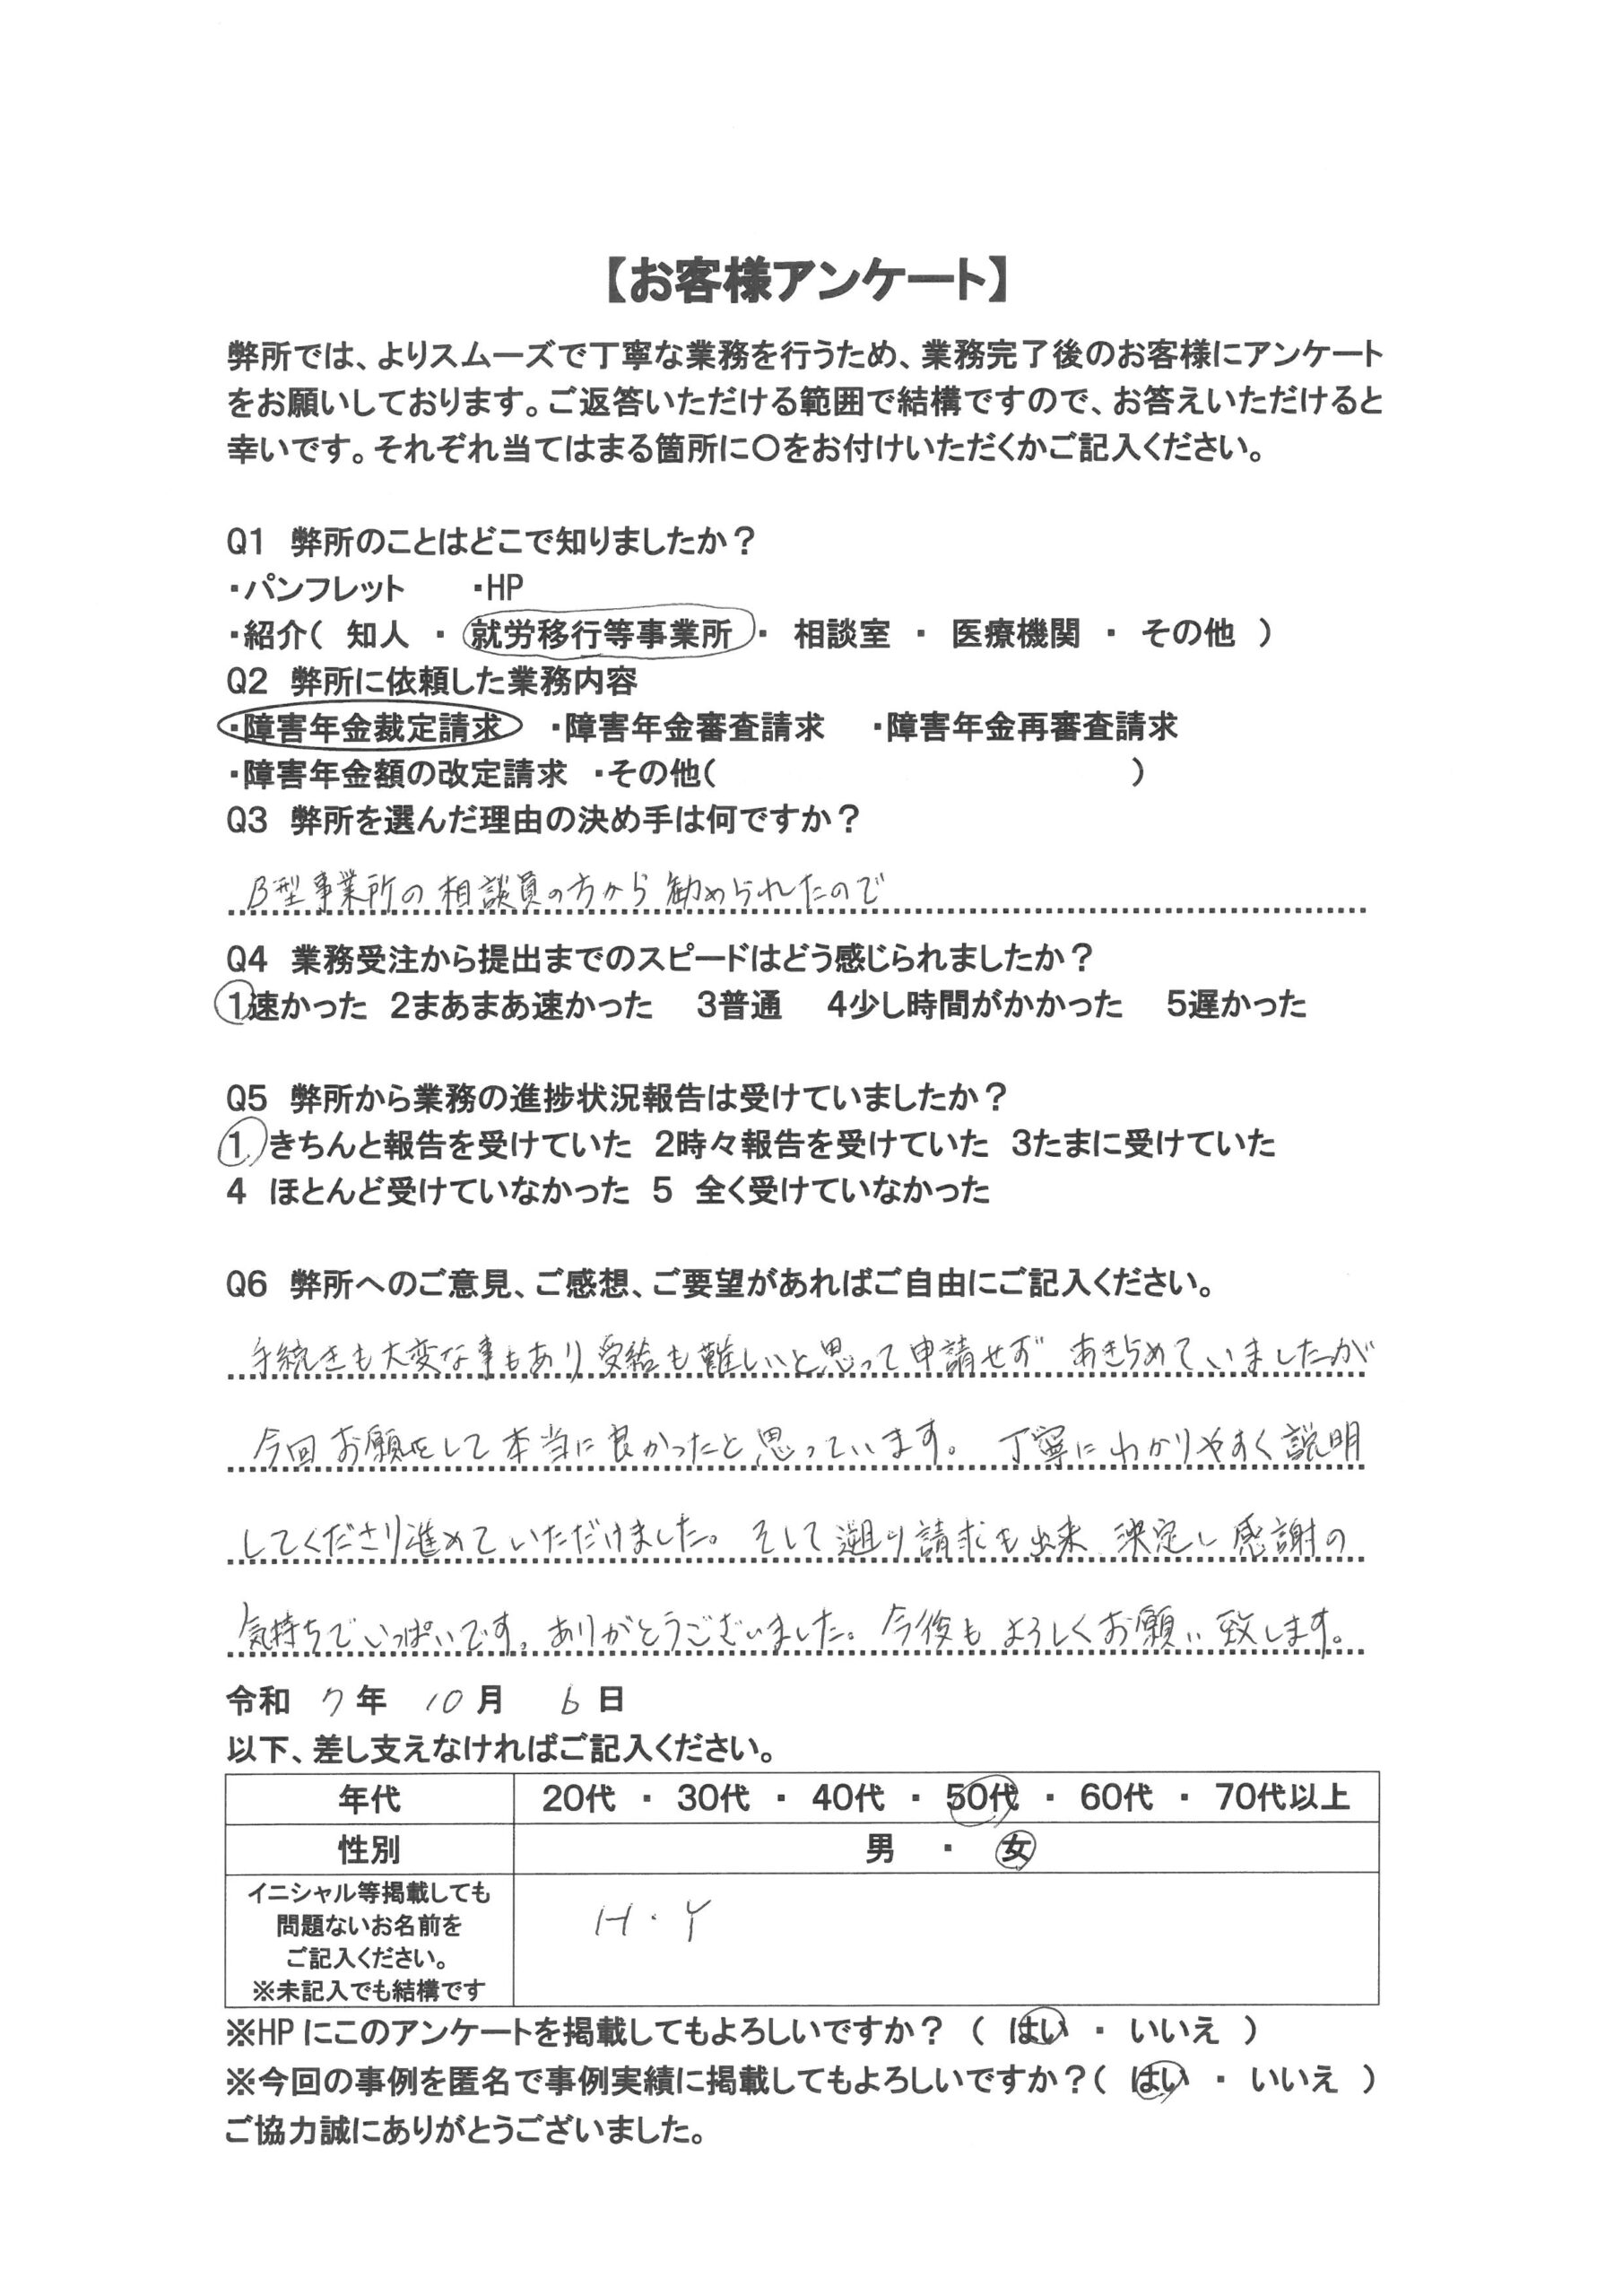 【お客様アンケート】
弊所では、よりスムーズで丁寧な業務を行うため、業務完了後のお客様にアンケート
をお願いしております。ご返答いただける範囲で結構ですので、お答えいただけると
幸いです。それぞれ当てはまる箇所に〇をお付けいただくかご記入ください。
Q1 弊所のことはどこで知りましたか？
・パンフレット ・HP
・紹介（ 知人 ・ 就労移行等事業所 ・ 相談室 ・ 医療機関 ・ その他 ）
Q2 弊所に依頼した業務内容
・障害年金裁定請求 ・障害年金審査請求 ・障害年金再審査請求
・障害年金額の改定請求 ・その他（ ）
Q3 弊所を選んだ理由の決め手は何ですか？
B型事業所の相談員の方から勧められたので
Q4 業務受注から提出までのスピードはどう感じられましたか？
1速かった 2まあまあ速かった 3普通 4少し時間がかかった 5遅かった
Q5 弊所から業務の進捗状況報告は受けていましたか？
1 きちんと報告を受けていた 2時々報告を受けていた 3たまに受けていた
4 ほとんど受けていなかった 5 全く受けていなかった
Q6 弊所へのご意見、ご感想、ご要望があればご自由にご記入ください。
手続きも大変な事もあり受給も難しいと思って申請せず あきらめていましたが
今回お願をして本当に良かったと思っています。 丁寧にわかりやすく説明
してくださり進めていただけました。そして遡り請求も出来 決定し感謝の
気持ちでいっぱいです。ありがとうございました。今後もよろしくお願い致します。
令和 7年 10月 6日
以下、差し支えなければご記入ください。
年代 20代 ・ 30代 ・ 40代 ・ 50代 ・ 60代 ・ 70代以上
性別 男 ・ 女
イニシャル等掲載しても
問題ないお名前を
ご記入ください。
※未記入でも結構です
H・Y
※HPにこのアンケートを掲載してもよろしいですか？（ はい ・ いいえ ）
※今回の事例を匿名で事例実績に掲載してもよろしいですか？（ はい ・ いいえ ）
ご協力誠にありがとうございました。